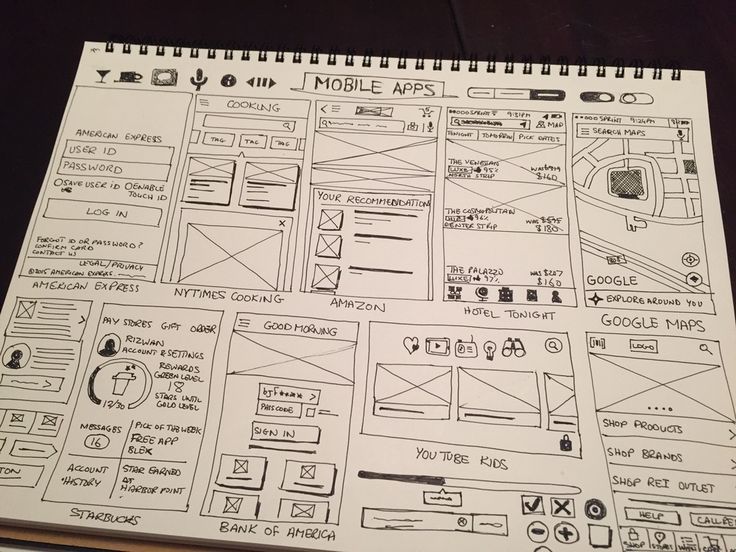 MOBILE APPS
AMERICAN EXPRESS
USER ID
PASSWORD
SAVE USER ID
ENABLE
TOUCH ID
LOG IN
FORGOT ID OR PASSWORD?
CONFIRM CARD
CONTACT US
LEGAL/PRIVACY
AMERICAN EXPRESS
COOKING
TAG
TAG
TAG
X
NYTIMES COOKING
YOUR RECOMMENDATION
AMAZON
SPRINT 9:31PM
MAP
TONIGHT
TOMORROW
PICK DATES
THE VENETIAN
LUXE 95%
NORTH STRIP
$160
THE COSMOPOLITAN
HIP 96%
CENTER STRIP
$180
THE PALAZZO
WAS $207
LUXE 97%
$160
HOTEL TONIGHT
SPRINT 9:24PM
SEARCH MAPS
GOOGLE
EXPLORE AROUND YOU
GOOGLE MAPS
PAY STORES GIFT ORDER
RIZWAN
ACCOUNT & SETTINGS
REWARDS
GREEN LEVEL
18
STARS UNTIL
GOLD LEVEL
12/30
MESSAGES
16
PICK OF THE WEEK
FREE APP
ACCOUNT
HISTORY
STAR EARNED
AT
HARBOR POINT
STARBUCKS
GOOD MORNING
bjf**** >
PASSCODE
SIGN IN
BANK OF AMERICA
YOUTUBE KIDS
LOGO
SHOP PRODUCTS
SHOP BRANDS
SHOP REI OUTLET
HELP
SHOP